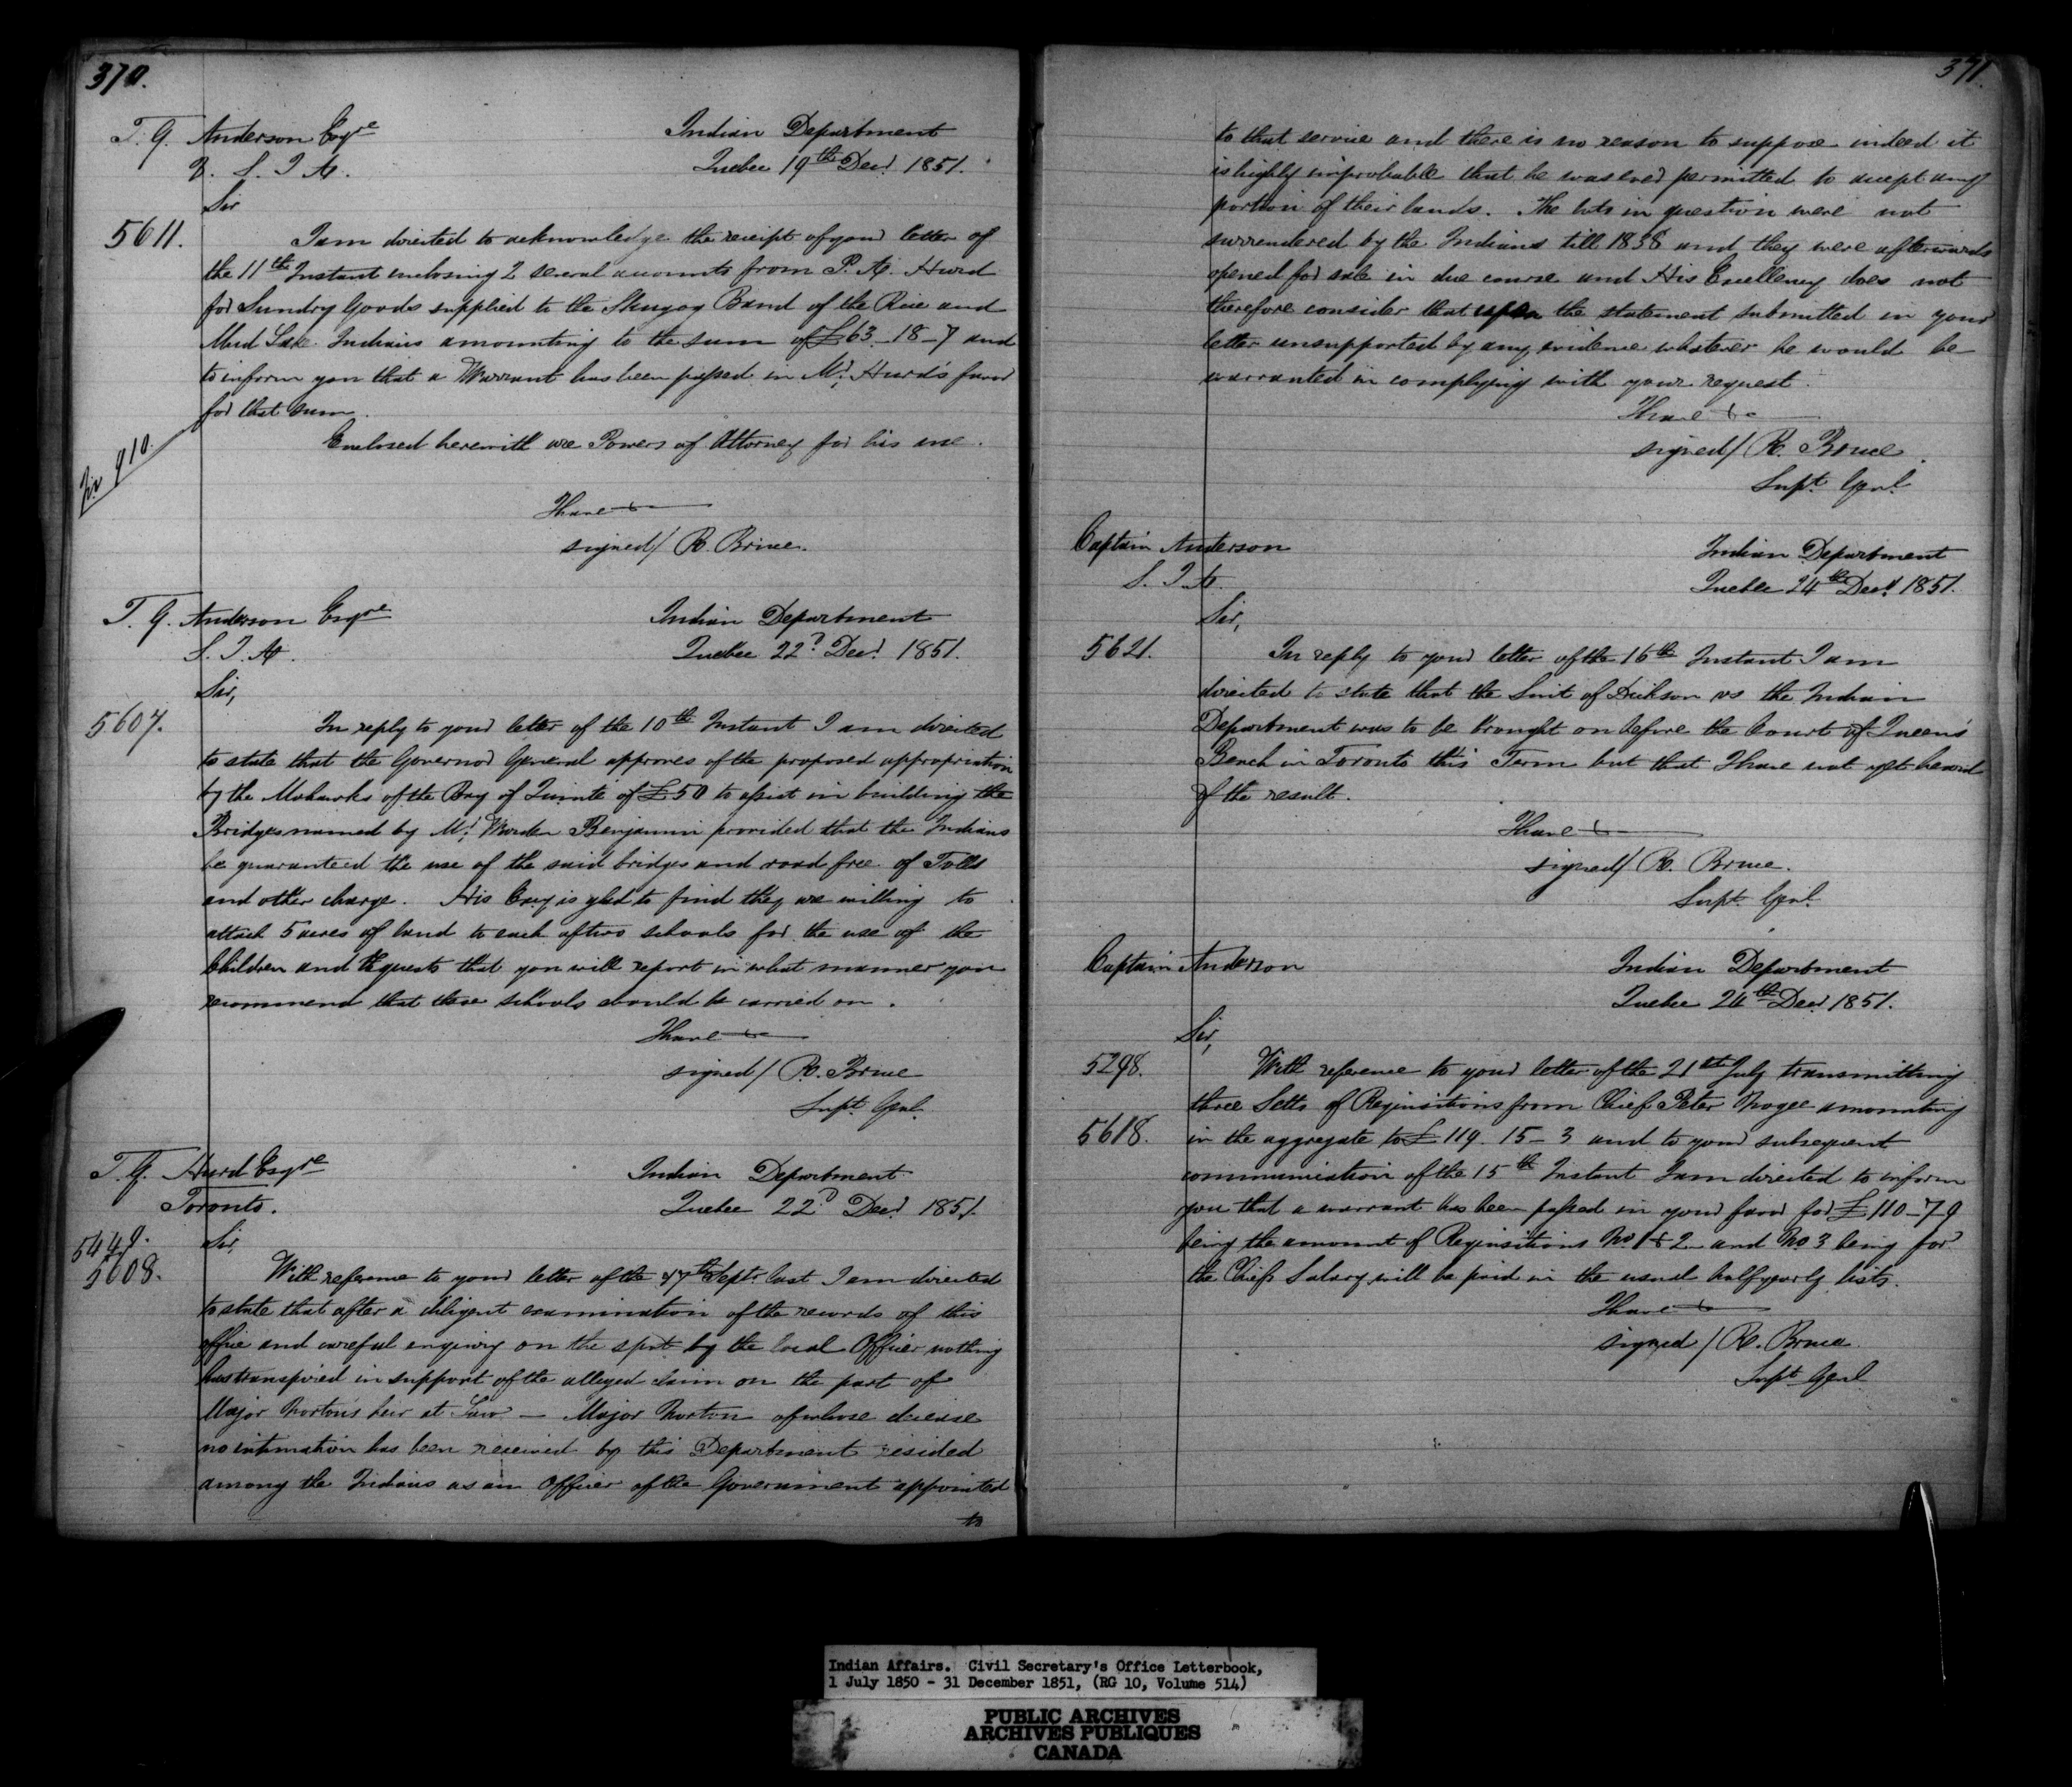 370.
T. G. Anderson Esqre
Indian Department
S. I. A.
Quebec 19th Decr 1851.
Sir
5611.
I am directed to acknowledge the receipt of your letter of
the 11th Instant enclosing 2 several accounts from P. A. Hurd
for Sundry Goods supplied to the Skugog Band of the Rice and
Mud Lake Indians amounting to the sum of £63-18-7 and
to inform you that a Warrant has been passed in Mr Hurd's favor
for that sum.
910.
Enclosed herewith are Powers of Attorney for his use.
I have &c
signed/ R. Bruce.
T. G. Anderson Esqre
Indian Department
S. I. A.
Quebec 22d Decr 1851.
Sir,
5607.
In reply to your letter of the 10th Instant I am directed
to state that the Governor General approves of the proposed appropriation
by the Mohawks of the Bay of Quinte of £50 to assist in building the
Bridges named by Mr Warden Benjamin provided that the Indians
be guaranteed the use of the said bridges and road free of Tolls
and other charge. His Excy is glad to find they are willing to
attach 5 acres of land to each of two schools for the use of the
Children and requests that you will report in what manner you
recommend that these schools should be carried on.
I have &c
signed/ R. Bruce
Supt Genl.
T. G. Hurd Esqre
Indian Department
Toronto.
Quebec 22d Decr 1851
5449.
Sir,
5608.
With reference to your letter of the 17th Septr last I am directed
to state that after a diligent examination of the records of this
office and careful enquiry on the spot by the local Officer nothing
has transpired in support of the alleged claim on the part of
Major Norton's heir at Law - Major Norton of whose decease
no intimation has been received by this Department resided
among the Indians as an Officer of the Government appointed
to
371.
to that service and there is no reason to suppose indeed it
is highly improbable that he was ever permitted to accept any
portion of their lands. The lots in question were not
surrendered by the Indians till 1838 and they were afterwards
opened for sale in due course and His Excellency does not
therefore consider that upon the statement submitted in your
letter unsupported by any evidence whatever he would be
warranted in complying with your request.
I have &c
signed/ R. Bruce
Supt Genl.
Captain Anderson
Indian Department
S. I. A.
Quebec 24th Decr 1851.
Sir,
5621.
In reply to your letter of the 16th Instant I am
directed to state that the Suit of Dickson vs the Indian
Department was to be brought on before the Court of Queens
Bench in Toronto this Term but that I have not yet heard
of the result.
I have &c
signed/ R. Bruce.
Supt Genl.
Captain Anderson
Indian Department
Quebec 24th Decr 1851.
Sir,
5298.
With reference to your letter of the 21st July transmitting
three Setts of Requisitions from Chief Peter Nogee amounting
5618.
in the aggregate to £119-15-3 and to your subsequent
communication of the 15th Instant I am directed to inform
you that a warrant has been passed in your favor for £110-7-9
being the amount of Requisitions No 1 & 2 and No 3 being for
the Chiefs Salary will be paid in the usual half yearly lists.
I have &c
signed/ R. Bruce
Supt Genl
Indian Affairs. Civil Secretary's Office Letterbook,
1 July 1850 - 31 December 1851, (RG 10, Volume 514)
PUBLIC ARCHIVES
ARCHIVES PUBLIQUES
CANADA